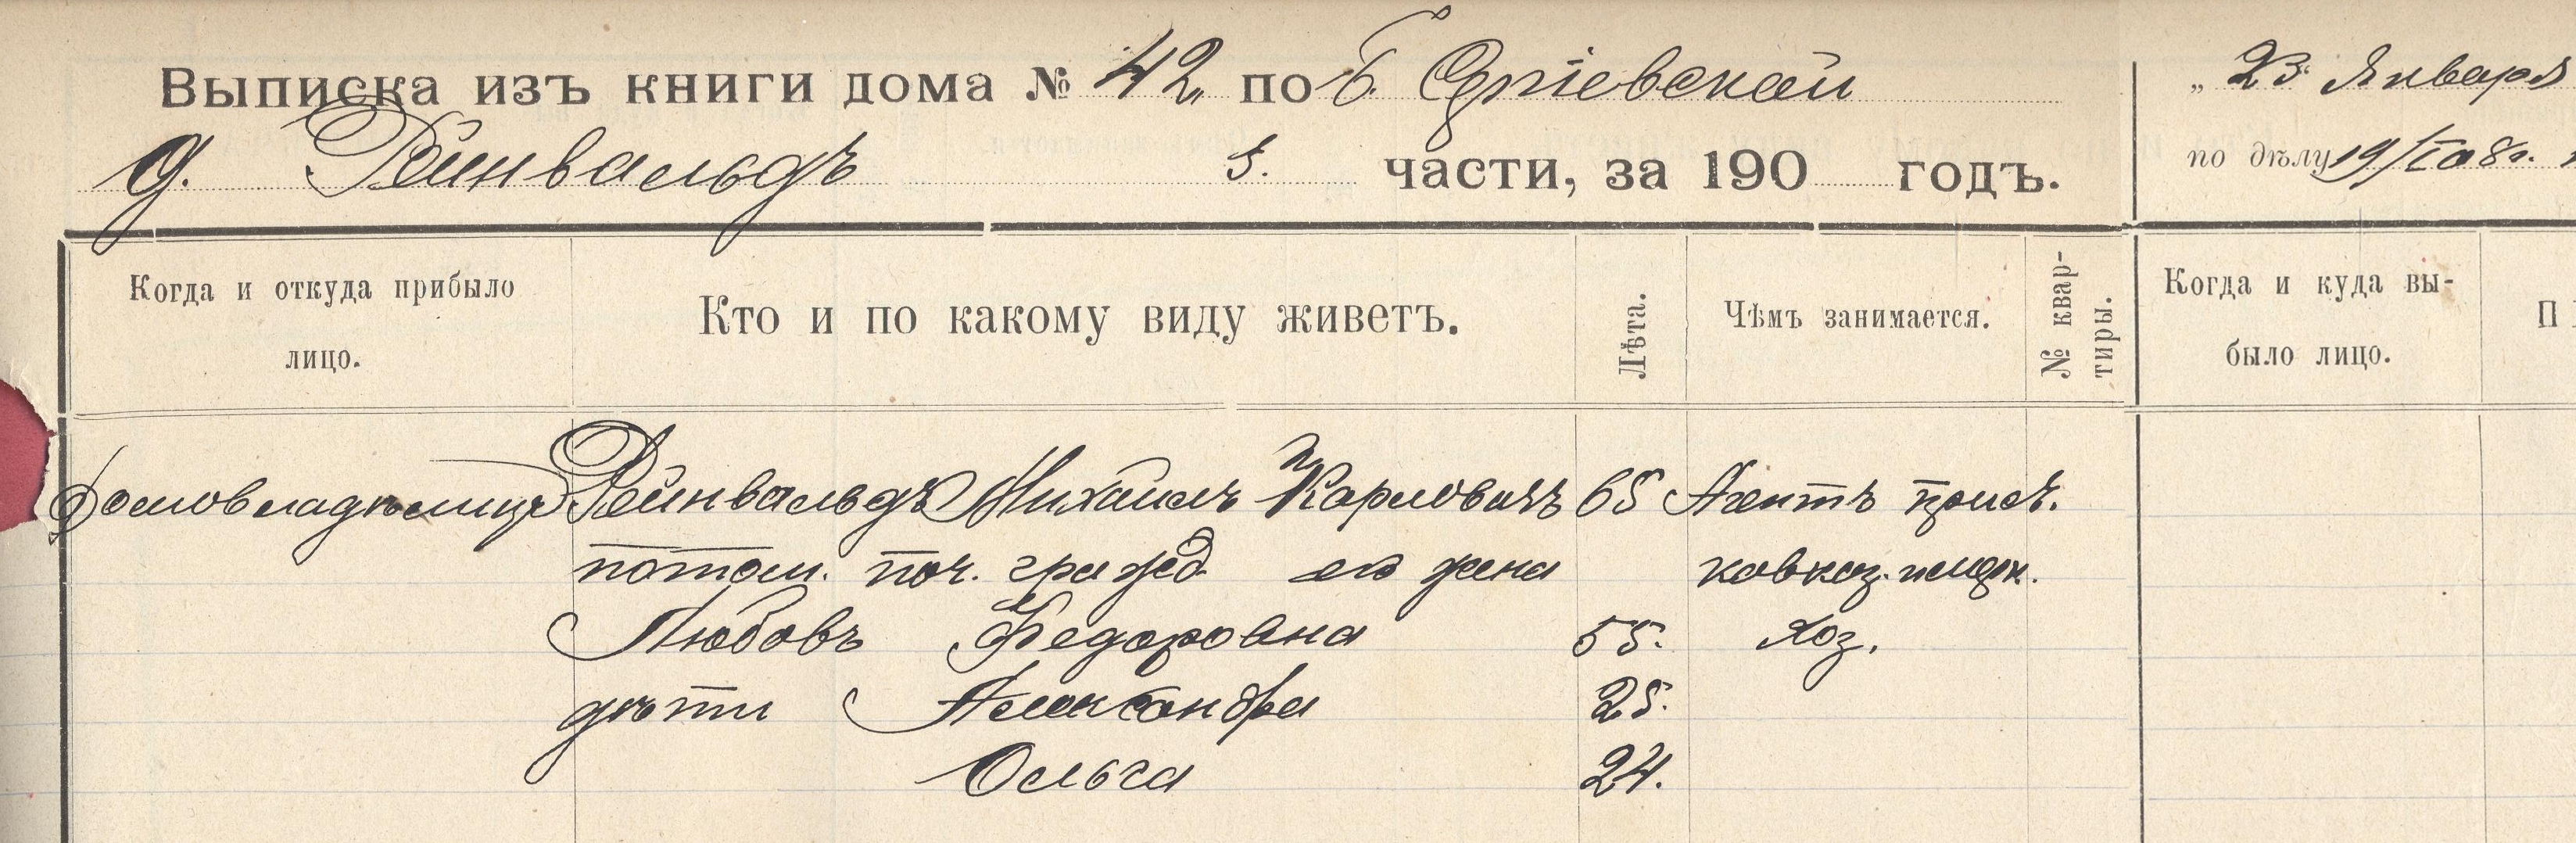 Выписка изъ книги дома № 42, по Б. Сергіевской
„ 23 Января
д. Рейнвальдъ 5. части, за 190 годъ.
по дѣлу 19/I 08 г.
Когда и откуда прибыло
лицо.
Кто и по какому виду живетъ.
Лѣта.
Чѣмъ занимается.
№ квар-
тиры.
Когда и куда вы-
было лицо.
П
домовладѣлица Рейнвальдъ Михаилъ Карловичъ 65 Агентъ
потом. поч. гражд. его жена кавказ.
Любовь Федоровна 55. хоз.
дѣти Александра 25.
Ольга 24.